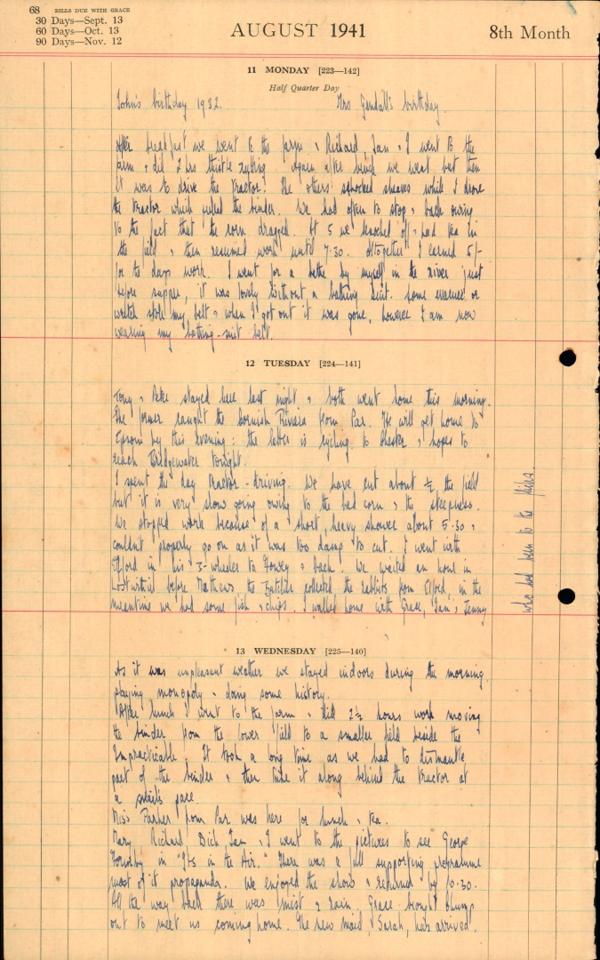 68 BILLS DUE WITH GRACE
30 Days—Sept. 13
60 Days—Oct. 13
90 Days—Nov. 12
AUGUST 1941
8th Month
11 MONDAY [223—142]
Half Quarter Day
John's birthday 1932. Mrs Gendall's birthday.
After breakfast we went to the farm & Richard, Ian & I went to the
farm & did 2 hrs thistle cutting. Again after lunch we went but then
it was to drive the tractor! The others schocked sheaves while I drove
the tractor which pulled the binder. We had often to stop & back owing
to the fact that the corn dragged. At 5 we knocked off & had tea in
the field & then resumed work until 7.30. Altogether I earned 5/-
for to days work. I went for a bathe by myself in the river just
before supper, it was lovely without a bathing suit. Some evacuee or
stole my belt & when I got out it was gone, however I am now
wearing my bathing-suit belt.
12 TUESDAY [224—141]
Tony & Peter stayed here last night & both went home this morning.
The former caught the Cornish Riviera from Par. He will get home to
Epsom by this evening: the latter is cycling to Chester & hopes to
reach Bridgewater tonight.
I spent the day tractor-driving. We have cut about ½ the field
but it is very slow going owing to the bad corn & the steepness.
We stopped work because of a short, heavy shower about 5.30 &
couldn't properly go on as it was too damp to cut. I went with
Elford in his 3-wheeler to Fowey & back. We waited an hour in
Lostwithiel before Mathews the collected the rabbits from Elford, in the
meantime we had some fish & chips. I walked home with Grace, Ian & Jenny
who had been to the flicks.
13 WEDNESDAY [225—140]
As it was unpleasant weather we stayed indoors during the morning
playing monopoly & doing some history.
After lunch I went to the farm & did 2½ hours work moving
the binder from the lower field to a smaller field beside the
Impracticable. It took a long time as we had to dismantle
part of the binder & then take it along behind the tractor at
a snail's pace.
Miss Parker from Par was here for lunch & tea.
Mary, Richard, Dick, Ian & I went to the pictures to see George
Formby in "It's in the Air." There was a full supporting programme
most of it propaganda. We enjoyed the show & returned by 10.30.
All the way back there was mist & rain. Grace brought
out to meet us coming home. The new maid, Sarah, has arrived.